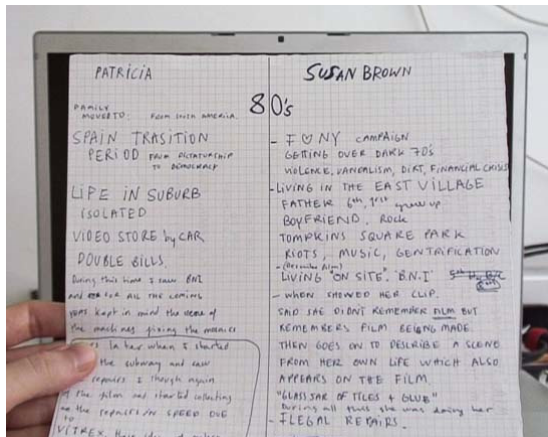 PATRICIA
SUSAN BROWN
80's
FAMILY
MOVED TO: FROM SOUTH AMERICA.
SPAIN TRASITION
PERIOD FROM DICTATORSHIP
TO DEMOCRACY
LIFE IN SUBURB
ISOLATED
VIDEO STORE by CAR
DOUBLE BILLS.
During this time I saw BNI
and for all the coming
years kept in mind the scene of
the machines giving the
later when I started
the subway and saw
repairs I though again
of the film and started collecting
the repairs in SPEED DUE
TO
VITREX
- I ♡ NY CAMPAIGN
GETTING OVER DARK 70's
VIOLENCE, VANDALISM, DIRT, FINANCIAL CRISIS
- LIVING IN THE EAST VILLAGE
FATHER 6th, 1rst grew up
BOYFRIEND, ROCK
TOMPKINS SQUARE PARK
RIOTS, MUSIC, GENTRIFICATION
- (Describe film)
LIVING "ON SITE". "B.N.I"
- WHEN SHOWED HER CLIP.
SAID SHE DIDNT REMEMBER FILM BUT
REMEMBERS FILM BEING MADE.
THEN GOES ON TO DESCRIBE A SCENE
FROM HER OWN LIFE WHICH ALSO
APPEARS ON THE FILM.
"GLASS JAR OF TILES + GLUE"
During all this she was doing her
- ILEGAL REPAIRS.